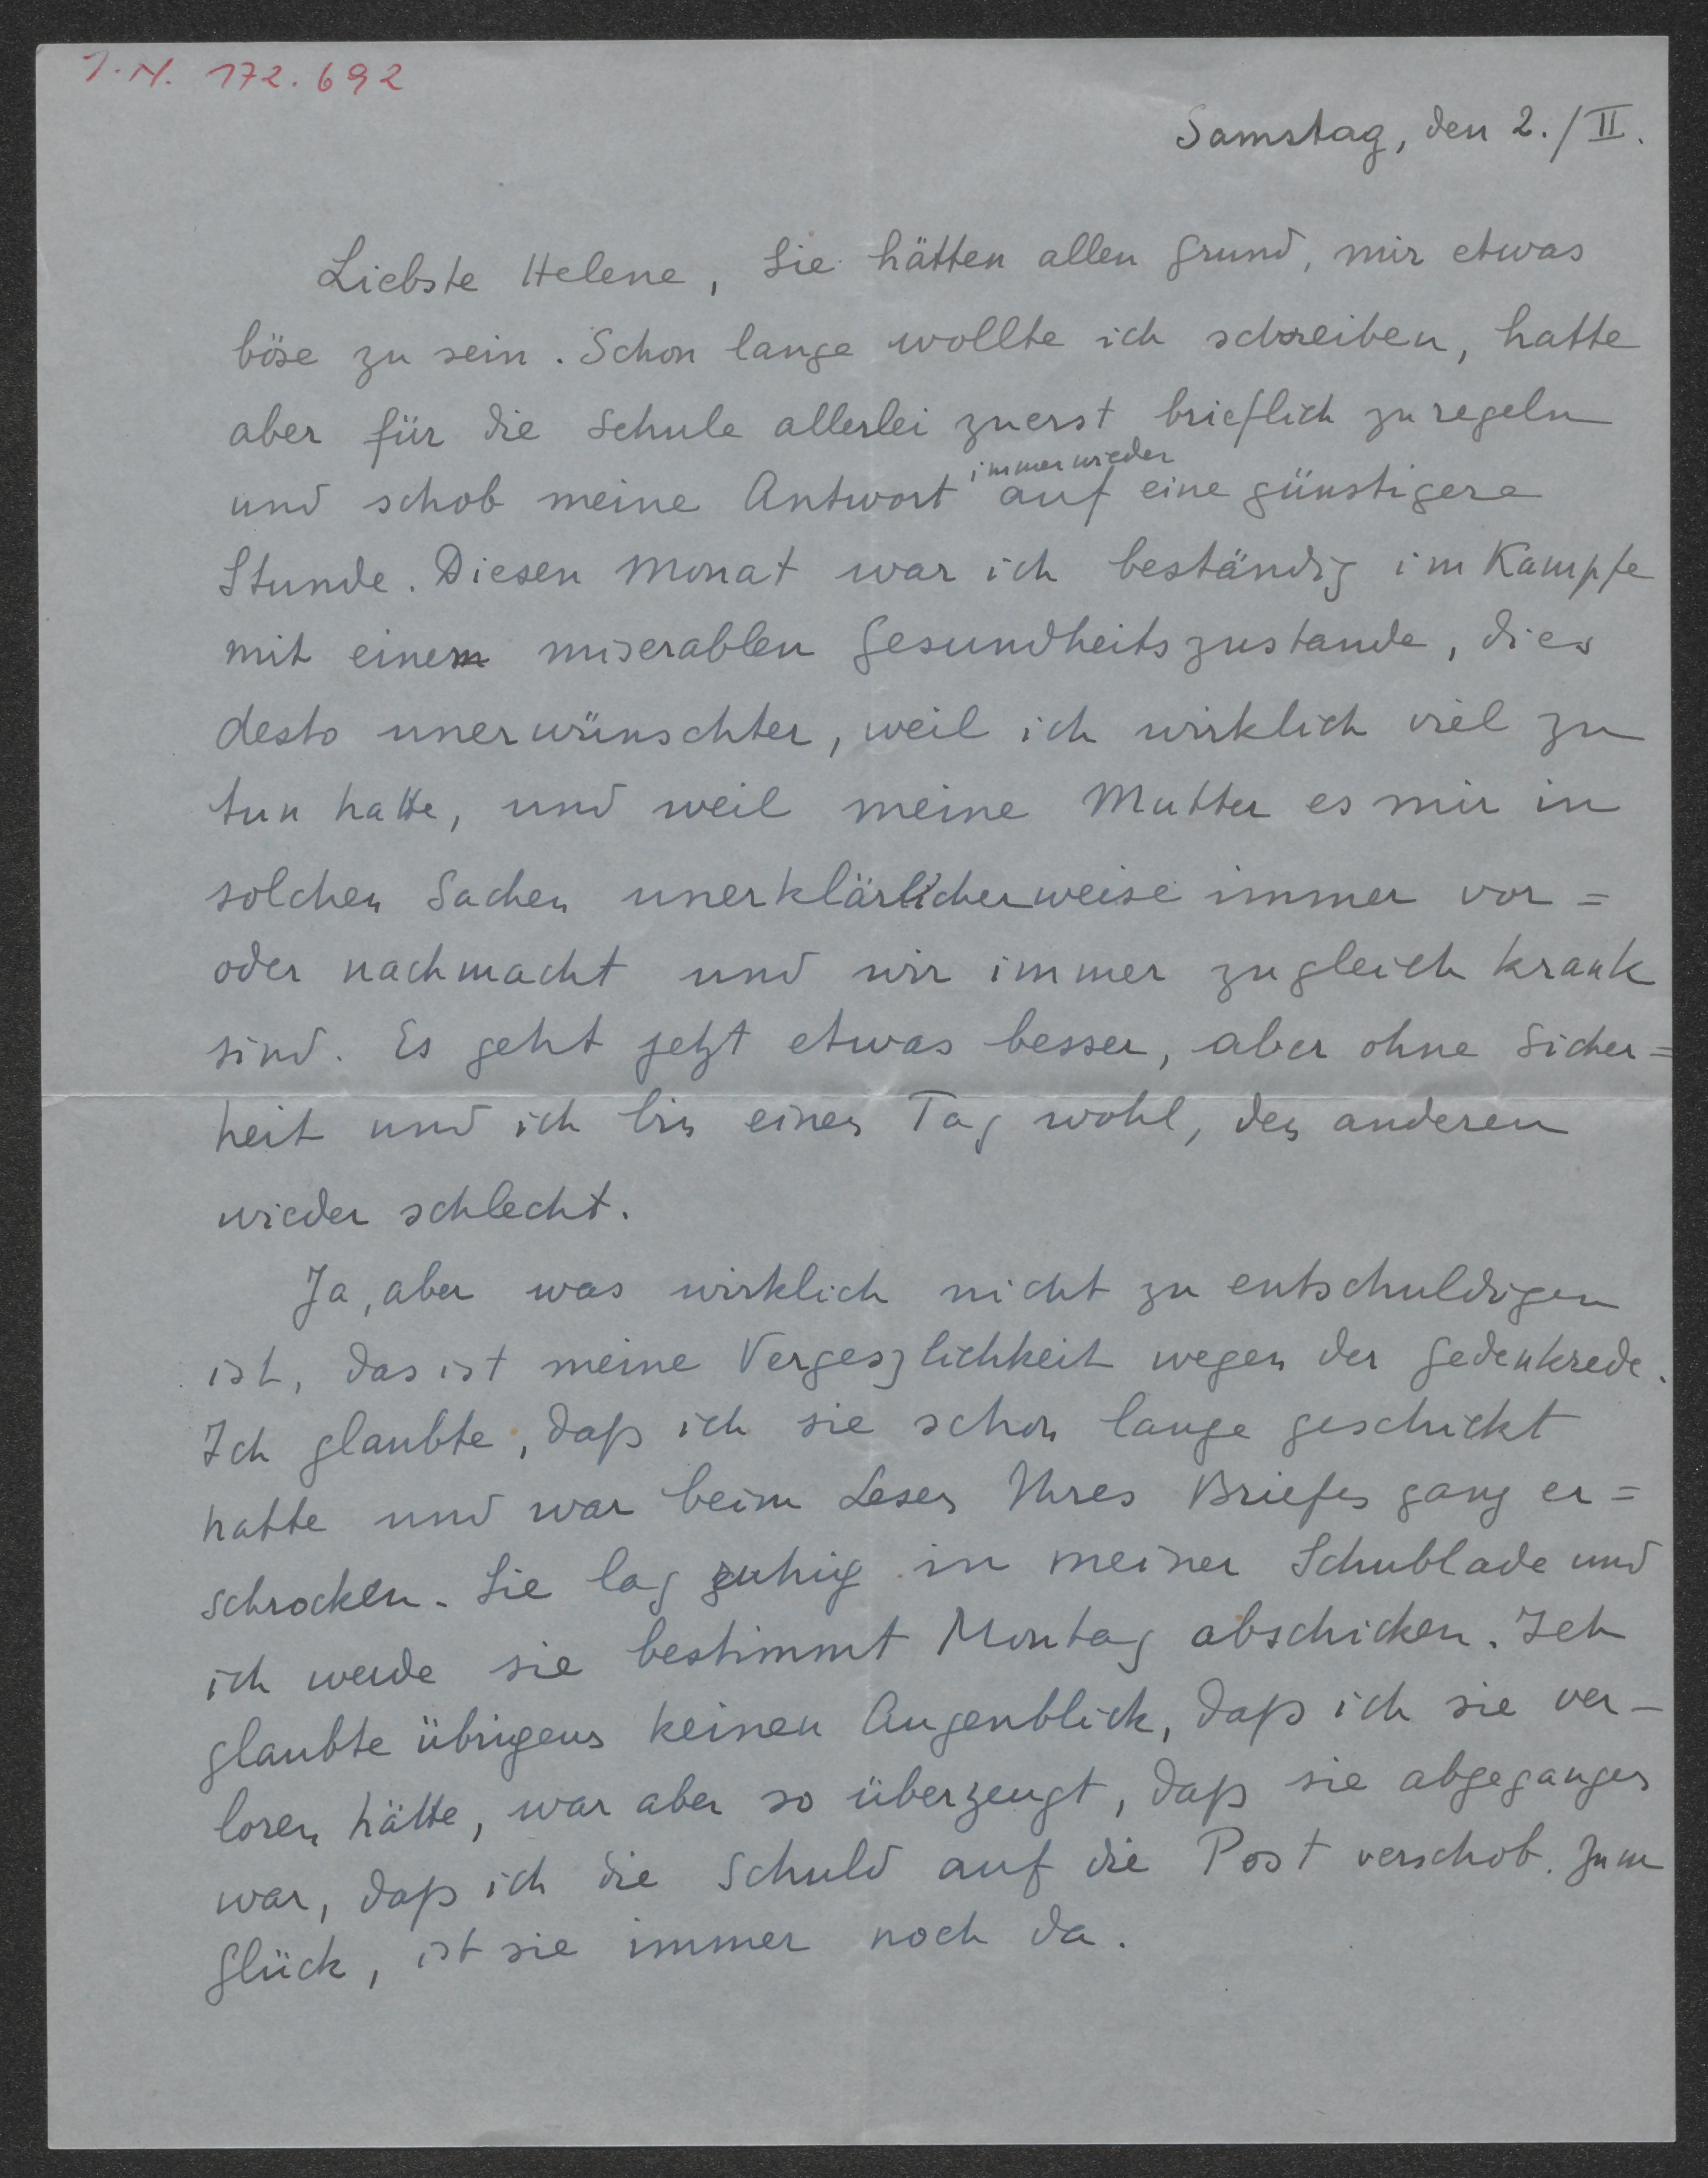 I.N. 172.692
Samstag, den 2./II.
Liebste Helene, Sie hätten allen Grund, mir etwas
böse zu sein. Schon lange wollte ich schreiben, hatte
aber für die Schule allerlei zuerst brieflich zu regeln
immer wieder
und schob meine Antwort auf eine günstigere
Stunde. Diesen Monat war ich beständig im Kampfe
mit einem miserablen Gesundheitszustande, dies
desto unerwünschter, weil ich wirklich viel zu
tun hatte, und weil meine Mutter es mir in
solchen Sachen unerklärlicherweise immer vor=
oder nachmacht und wir immer zugleich krank
sind. Es geht jetzt etwas besser, aber ohne Sicher=
heit und ich bin einen Tag wohl, den anderen
wieder schlecht.
Ja, aber was wirklich nicht zu entschuldigen
ist, das ist meine Vergeszlichkeit wegen der Gedenkrede.
Ich glaubte, daß ich sie schon lange geschickt
hatte und war beim Lesen Ihres Briefes ganz er=
schrocken. Sie lag ruhig in meiner Schublade und
ich werde sie bestimmt Montag abschicken. Ich
glaubte übrigens keinen Augenblick, daß ich sie ver-
loren hätte, war aber so überzeugt, daß sie abgegangen
war, daß ich die Schuld auf die Post verschob. Zum
Glück, ist sie immer noch da.